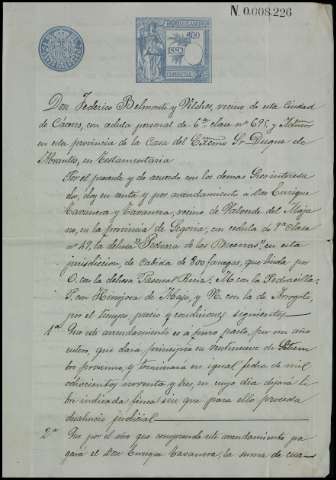 N. 0.008.226
1892
Don Federico Belmonte y Vilches, vecino de esta Ciudad
de Cáceres, con cedula personal de 6ª clase nº 695, y
en esta provincia de la Casa del Exmo Sr Duque de
en Testamentaria
Por el presente y de acuerdo con los demas
doy en renta y por arrendamiento a Don Enrique
Casanova y Casanova, vecino de
en la provincia de Segovia, con cedula de clase
nº 49, la dehesa de los Becerros, en esta
jurisdicion, de cabida de 800 fanegas, que linda por
O. con la dehesa Pascual M. con la
P. con y N. con la de Arroyolo,
por el tiempo, precio y condiciones siguientes
1ª Que este arrendamiento es á pasto, por un año
entero, que dará principio en veintinueve de Setiem
bre proximo, y terminara en igual fecha de mil
ochocientos noventa y tres, en cuyo dia dejará li
bre indicada finca sin que para ello preceda
deshaucio judicial
2ª Que por el año que comprende este arrendamiento pa
gará el Don Enrique Casanova, la suma de cua-